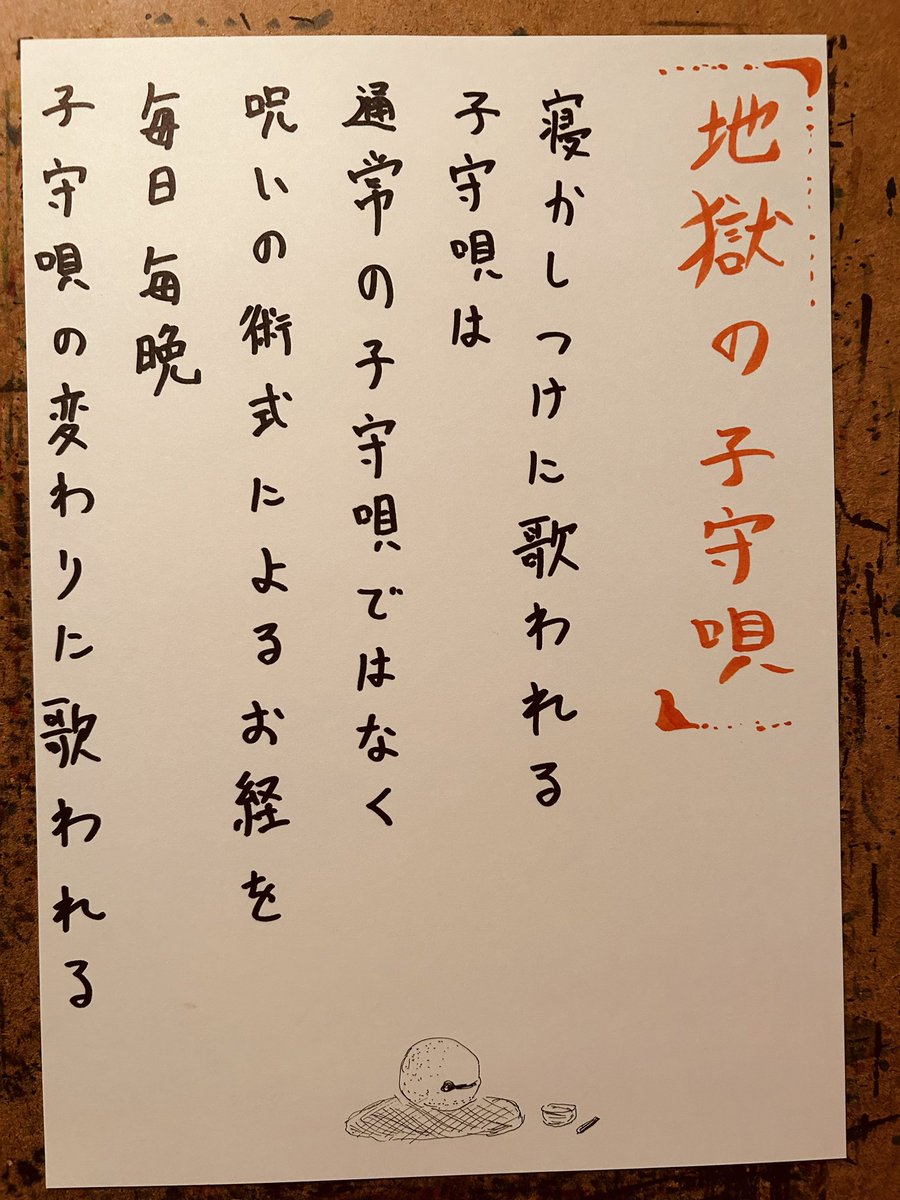 「地獄の子守唄」
寝かしつけに歌われる
子守唄は
通常の子守唄ではなく
呪いの術式によるお経を
毎日毎晩
子守唄の変わりに歌われる